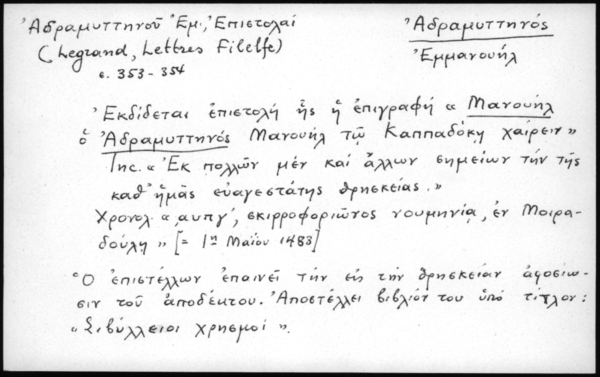 Ἀδραμυττηνοῦ Ἐμ., Ἐπιστολαί
(Legrand, Lettres Filelfe)
σ. 353-354
Ἀδραμυττηνός
Ἐμμανουήλ
Ἐκδίδεται ἐπιστολή ἧς ἡ ἐπιγραφή « Μανουήλ
ὁ Ἀδραμυττηνός Μανουήλ τῷ Καππαδόκῃ χαίρειν»
Inc. « Ἐκ πολλῶν μέν καί ἄλλων σημείων τήν τῆς
καθ' ἡμᾶς εὐαγεστάτης θρησκείας.»
Χρονολ. « ͵αυπγ', σκιρροφοριῶνος νουμηνίᾳ, ἐν Μοιρα-
δούλῃ » [= 1η Μαΐου 1483]
Ὁ ἐπιστέλλων ἐπαινεῖ τήν εἰς τήν θρησκείαν ἀφοσίω-
σιν τοῦ ἀποδέκτου. Ἀποστέλλει βιβλίον του ὑπό τίτλον:
« Σιβύλλειοι χρησμοί ».